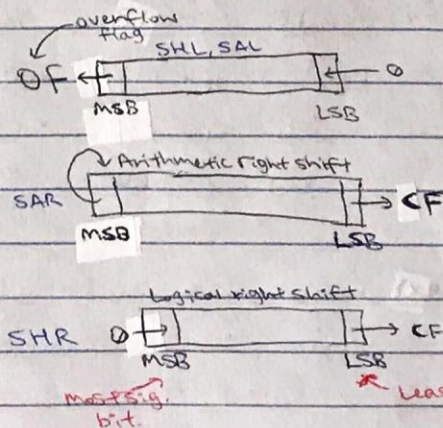 overflow
flag
SHL, SAL
OF
0
MSB
LSB
Arithmetic right shift
SAR
CF
MSB
LSB
Logical right shift
SHR
0
CF
MSB
LSB
most sig.
bit.
Leas